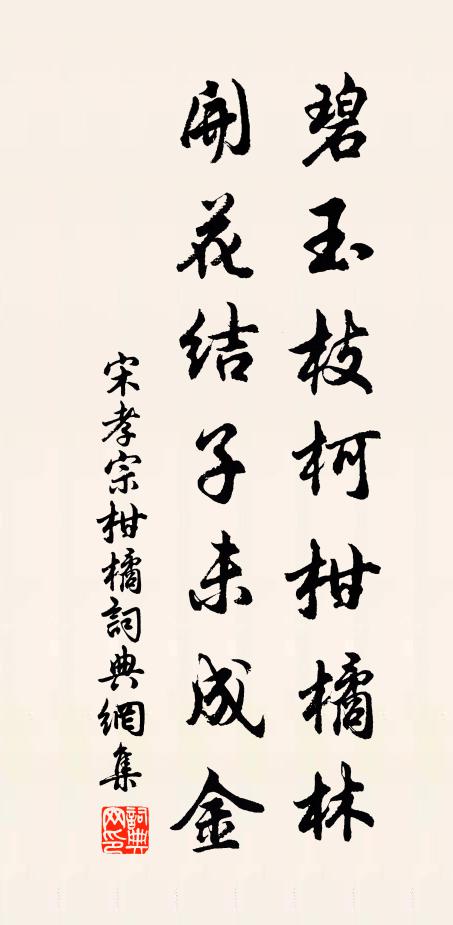 碧玉枝柯柑橘林
開花結子未成金
宋孝宗柑橘詞典網集
詞典
网印